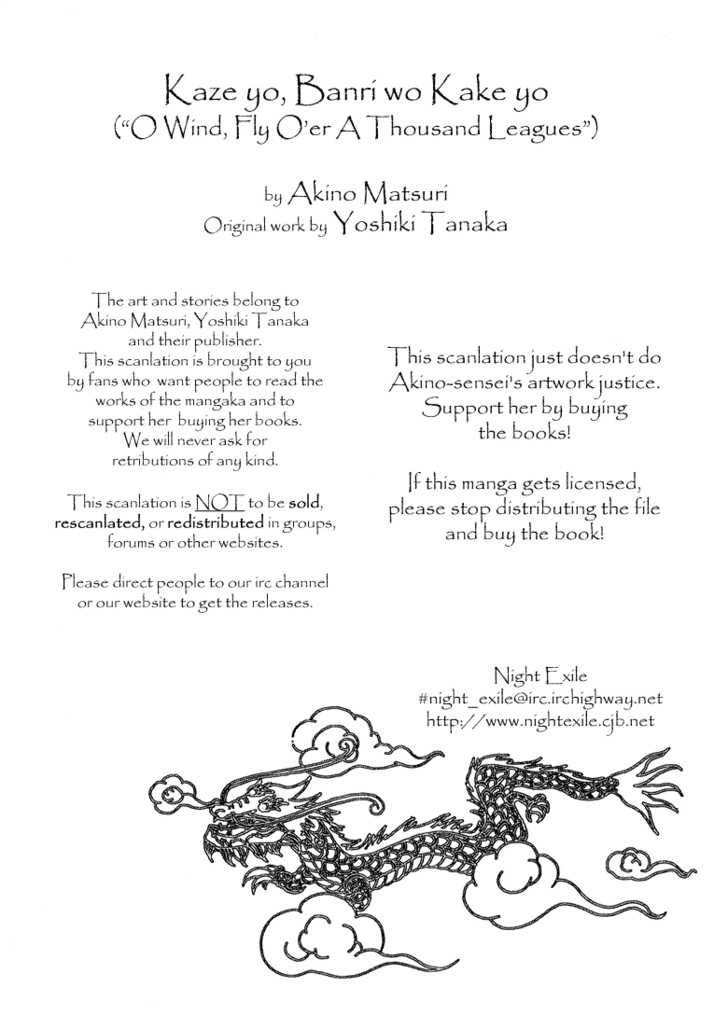 Kaze yo, Banri wo Kake yo
("O Wind, Fly O'er A Thousand Leagues")
by Akino Matsuri
Original work by Yoshiki Tanaka
The art and stories belong to
Akino Matsuri, Yoshiki Tanaka
and their publisher.
This scanlation is brought to you
by fans who want people to read the
works of the mangaka and to
support her buying her books.
We will never ask for
retributions of any kind.
This scanlation is NOT to be sold,
rescanlated, or redistributed in groups,
forums or other websites.
Please direct people to our irc channel
or our website to get the releases.
This scanlation just doesn't do
Akino-sensei's artwork justice.
Support her by buying
the books!
If this manga gets licensed,
please stop distributing the file
and buy the book!
Night Exile
#night_exile@irc.irchighway.net
http://www.nightexile.cjb.net